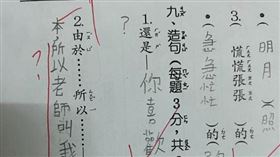 明月（照
3.慌慌張張（的
（急急忙忙）的
九、造句（每題3分，共
1.還是—你喜歡
？
2.由於……所以……
本，所以老師叫我